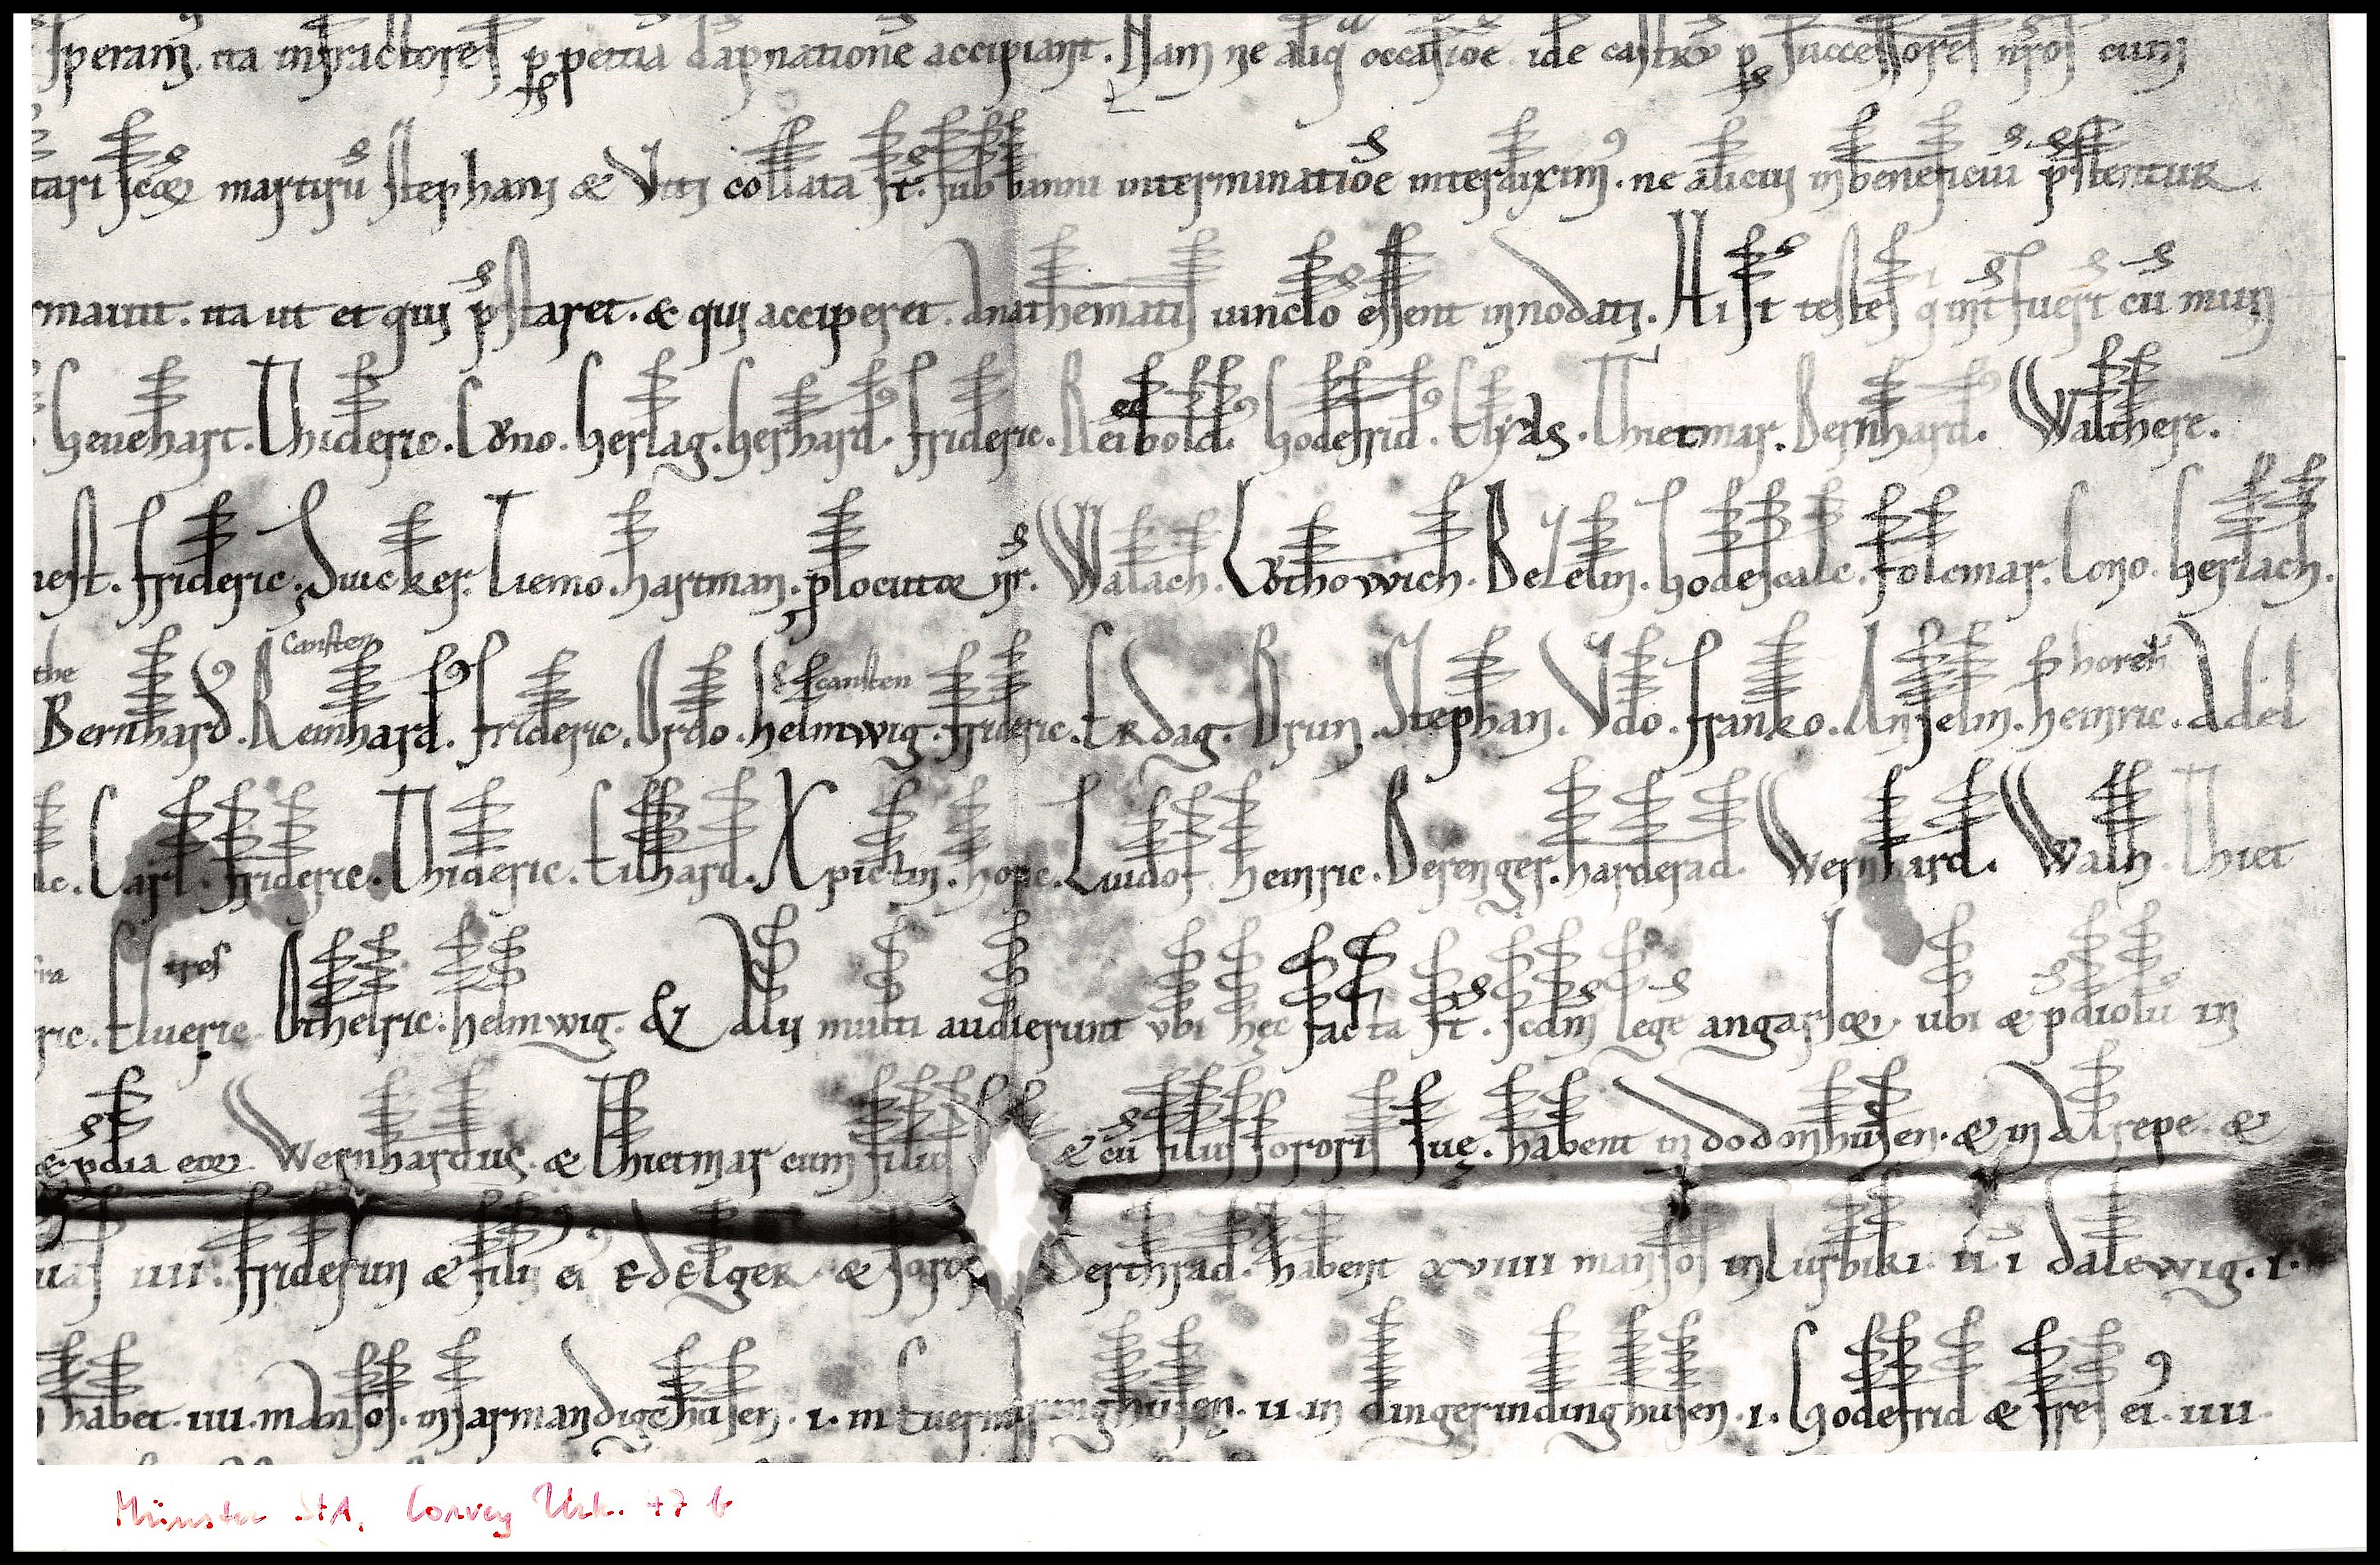 speram. ita infractores ppetua dapnatione accipiant. Nam ne aliq occasioe ide castru p successores nros cum
tari scoꝝ martirũ Stephani & Viti collata st. sub banni interminatiõe interdixim᾽. ne alicui in beneficiũ pstentur.
rmauit. ita ut et qui pstaret. & qui acciperet. Anathematis uinclo essent innodati. Hi st testes q int fuert cũ mun
Geuehart. Thideric. Cono. Gerlag. Gerhard. Frideric. Reibold. Godefrid. Thietmar. Bernhard. Walthere.
nest. Frideric. Suicker. Tiemo. hartman. plocutoꝝ nr. Walach. Gothowich. Becelin. Godescalc. Folcmar. Cono. Gerlach.
the Cansten & canften p horeh
Bernhard. Reinhard. Frideric. Ordo. helmwig. Frideric. Erdag. Brun. Stephan. Vdo. Franko. Anselm. heinric. Adel
ic. Carl. Frideric. Thideric. Eilhard. Xpictin. hoic. Liudof. heinric. Berenger. harderad. Wernhard. Walh. Thiet
fra tres
ric. Elueric. Othelric. helmwig. & Alii multi audierunt ubi hęc facta st. scdm lege angarioꝝ. ubi & pdiolu in
& pdia eoꝝ. Wernhardus. & Thietmar cum filiis & cũ filiis sororis suę. habent in dodonhusen. & in Alrepe. &
uas iiii. Friderun & filii ei᾽ Edelger & soror Berthrad. habent xviiii mansos in Lurbiki. ii. i dalewig. i.
habet. iiii. mansos. in sarmandigehusen. i. in Euerniringhusen. ii. in dingerindinghusen. i. Godefrid & fres ei᾽. iiii.
Münster StA, Corvey Urk. 47 b